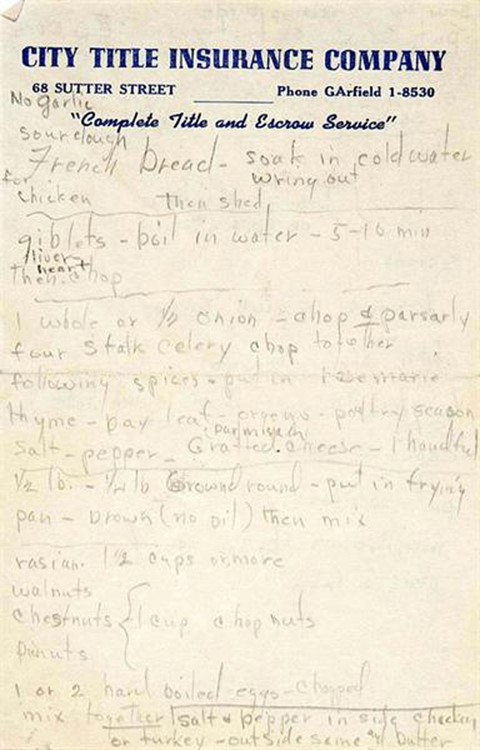 CITY TITLE INSURANCE COMPANY
68 SUTTER STREET Phone GArfield 1-8530
"Complete Title and Escrow Service"
No Garlic
sourdough
French bread - soak in cold water
wring out
for
chicken then shed
giblets - boil in water - 5-10 min
liver
heart
then chop
1 whole or 1/2 onion - chop & parsarly
four stalk celery chop together
following spices - put in rosemarie
thyme - bay leaf - oregeno - poltry season
parmisian
salt - pepper - Grated cheese - 1 handful
1/2 lb. - 1/4 lb Ground round - put in frying
pan - brown (no oil) then mix
rasian. 1 1/2 cups or more
walnuts
chestnuts 1 cup chop nuts
pinuts
1 or 2 hard boiled eggs - chopped
mix together salt & pepper in side chicken
or turkey - outside same butter